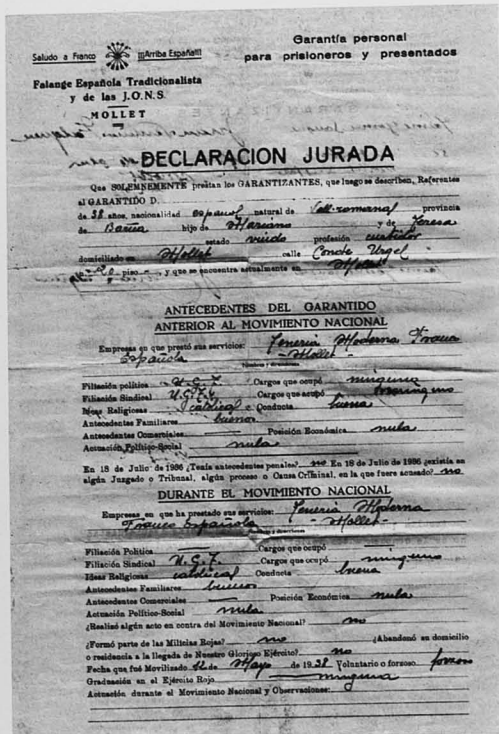 Saludo a Franco ¡¡¡Arriba España!!!
Garantía personal
para prisioneros y presentados
Falange Española Tradicionalista
y de las J.O.N.S.
MOLLET
DECLARACION JURADA
Que SOLEMNEMENTE prestan los GARANTIZANTES, que luego se describen, Referentes
al GARANTIDO D.
de 38 años, nacionalidad español natural de Vall-romanas provincia
de Barna hijo de Mariano y de Teresa
estado viudo profesión curtidor
domiciliado en Mollet calle Conde Urgel
nº 20 piso - , y que se encuentra actualmente en Mollet
ANTECEDENTES DEL GARANTIDO
ANTERIOR AL MOVIMIENTO NACIONAL
Empresas en que prestó sus servicios: Teneria Moderna Franco
Española - Mollet -
Filiación política U.G.T. Cargos que ocupó ninguno
Filiación Sindical U.G.T. Cargos que ocupó ninguno
Ideas Religiosas católicas Conducta buena
Antecedentes Familiares buenos
Antecedentes Comerciales Posición Económica nula
Actuación Político-Social nula
En 18 de Julio de 1936 ¿Tenía antecedentes penales? no En 18 de Julio de 1936 ¿existía en
algún Juzgado o Tribunal, algún proceso o Causa Criminal, en la que fuera acusado? no
DURANTE EL MOVIMIENTO NACIONAL
Empresas en que ha prestado sus servicios: Teneria Moderna
Franco Española - Mollet -
Filiación Política Cargos que ocupó
Filiación Sindical U.G.T. Cargos que ocupó ninguno
Ideas Religiosas católicas Conducta buena
Antecedentes Familiares buenos
Antecedentes Comerciales Posición Económica nula
Actuación Político-Social nula
¿Realizó algún acto en contra del Movimiento Nacional? no
¿Formó parte de las Milicias Rojas? no ¿Abandonó su domicilio
o residencia a la llegada de Nuestro Glorioso Ejército? no
Fecha que fué Movilizado 12 de Mayo de 1938 Voluntario o forzoso forzoso
Graduación en el Ejército Rojo ninguna
Actuación durante el Movimiento Nacional y Observaciones: